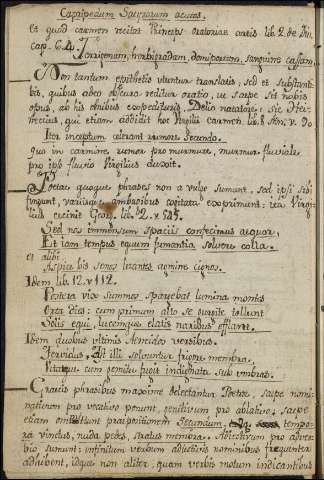 Capripedum Satyrorum acutas.
Et quod carmen recitat Princeps oratoriae artis lib. 2. de Div.
cap. 64. Terrigenam, herbigradam, domiportam, sanguine cassam.
Non tantum epithetis utuntur translatis, sed et substanti-
bis, quibus adeo obscura redditur oratio, ut saepe sit nobis
opus, ab his ob
Delio natatore: sic
et etiam addidit hoc Virgilii carmen lib. 8 Aen. v. 90
Iter inceptum celerant rumore secundo.
quo in carmine rumor pro murmure, murmur fluviale
pro ipso fluvio Virgilius duxit.
Poetae quoque phrases non a vulgo sumunt, sed ipsi sibi
fingunt, variisque ambagibus cogitata exprimunt: ita Virgi-
lius cecinit Georg. lib. 2. v 545.
Sed nos immensum spaciis confecimus aequor,
Et iam tempus equum fumantia solvere colla.
et alibi.
Aspice bis senos laetantes agmine cignos.
Idem lib. 12. v 112.
Postera vix summos spargebat lumine montes
Orta dies: cum primum alto se gurgite tollunt
Solis equi, lucemque elatis naribus efflant.
Idem duobus ultimis Aeneidos versibus.
Fervidus. Ast illi solvuntur frigore membra,
Vitaque cum gemitu fugit indignata sub umbras.
Graecis phrasibus maxime delectantur Poetae, saepe nomi-
nativum pro vocativo ponunt, genitivum pro ablativo: saepe
etiam omittunt praepositionem Secundum tempo-
ra vinctus, nuda pedes, stratus membra. Adiectivum pro adver-
bio sumunt: infinitum verbum adiectivis nominibus frequenter
adhibent, idque non aliter, quam verbis motum indicantibus